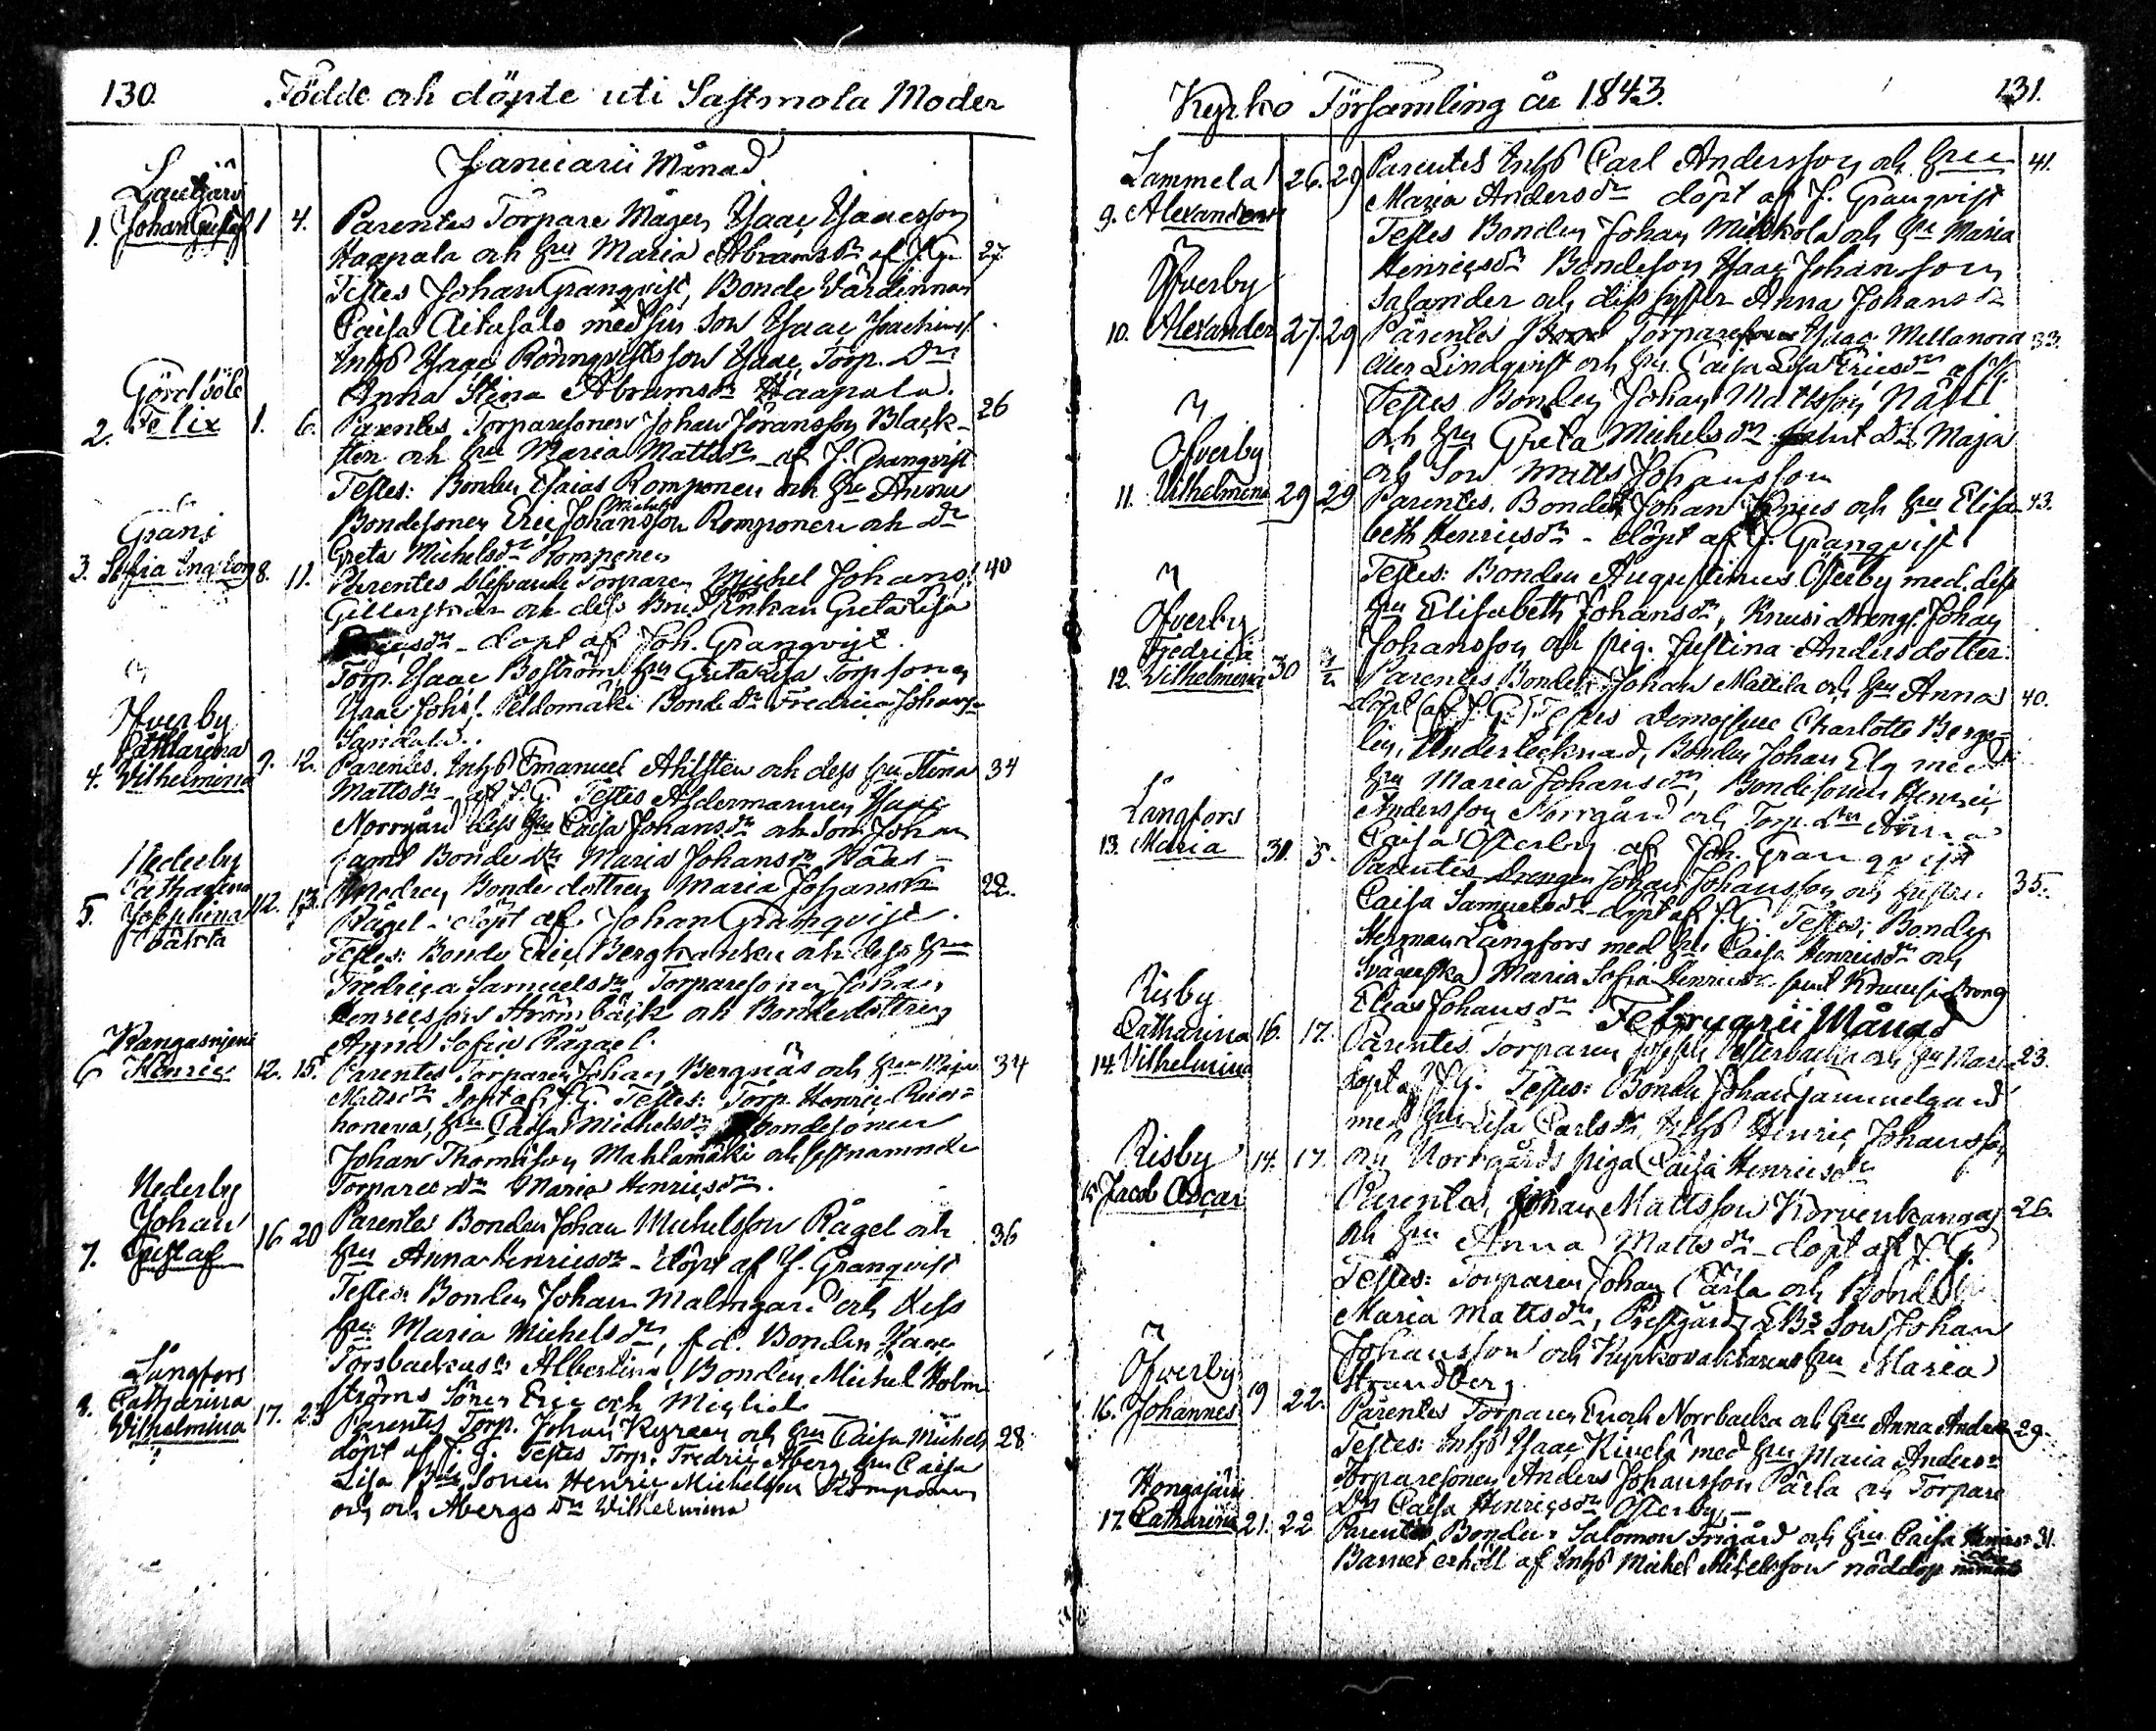 130. Födde och döpte uti Sastmola Moder
Januarii Månad
Lautjärvi
1. Johan Gustaf 1 4. Parentes Torpare Mågen Isaac Isaacsson
Haapala och hru Maria Abramsdr af J. G. 27.
Testes Johan Granqvist, Bonde Värdinnan
Caisa med sin Son Isaac Joachimss.
Inhs Isaac Rönnqvists son Isaac, Torp. Dr
Anna Stina Abramsdr Haapala.
Gördböle
2. Felix 1. 6. Parentes Torparesonen Johan Jöransson Black- 26
sten och hru Maria Mattsdr af J. Granqvist
Testes: Bonden Esaias Romponen och hru Anna
Bondesonen Eric Johansson Michelss Romponen och Dr
Greta Michelsdr Romponen
Gränj
3. Sofia 8. 11. Parentes blefvande Torparen Michel Johans. 40
och dess Brud Enkan Greta Lisa
Ericsdr - döpt af Joh. Granqvist.
Torp. Isaac Boström hru Greta Lisa Torpsonen
Isaac Johs. Peldomäki Bonde dr Fredrica Johansdr
Sandala.
Ofverby
Catharina
4. Vilhelmina 9. 12. Parentes. Inhs Emanuel Ahlsten och dess hru Stina 34
Mattsdr - af J. G. Testes Åldermannen Isaac
Norrgård dess hru Caisa Johansdr och Son Johan
samt Bonde dr Maria Johansdr Nääs
Nederby
Catharina
5. Josephina 12. 13. Modren Bonde dottren Maria Johansdr 22.
oäkta
Rågel - döpt af Johan Granqvist.
Testes: Bonden Eric Bergkanku och dess hru
Fredrica Samuelsdr, Torparesonen Johan
Henricsson Strömbäck och Bondedottren
Anna Sofia Rågael.
Kangasniemi
6 Henric 12. 15. Parentes Torparen Johan Bergnäs och hru Maja 34
Mattsdr döpt af J. G. Testes: Torp. Henric Ruos-
honeva, hru Caisa Michelsdr bondesonen
Johan Thomasson Mahlamäki och sistnamnde
Torpares dr Maria Henricsdr.
Nederby
Johan
7. Gustaf 16 20 Parentes Bonden Johan Michelsson Rågel och 36
hru Anna Henricsdr - döpt af J. Granqvist
Testes: Bonden Johan Malmgård och dess
hru Maria Michelsdr, f.d. Bonden Isaac
Torsbackas dr Albertina, Bonden Michel Holm
ströms Söner Eric och Michel
Långfors
8. Catharina
Vilhelmina 17. 23 Parentes Torp. Johan Kyreen och hru Caisa Michels 28
döpt af J. G. Testes Torp. Fredric Åberg hru Caisa
Lisa Bde Sonen Henric Michelsson Romponen
och Åbergs Dr Vilhelmina
Kyrko Församling år 1843. 131.
Lammela
9. Alexander 26. 29 Parentes Inhs Carl Andersson och hru 41.
Maria Andersdr döpt af J. Granqvist
Testes Bonden Johan Mikkola och hru Maria
Henricsdr Bondeson Isaac Johansson
Salander och dess syster Anna Johansdr
Ofverby
10. Alexander 27. 29 Parentes Torpare Isaac Mellanova 33.
eller Lindqvist och hru. Caisa Lisa Ericsdr af J. G.
Testes Bonden Johan Mattsson Näse
och hru Greta Michelsdr samt dr Maja
och Son Matts Johansson
Ofverby
11. Vilhelmina 29 29 Parentes. Bonden Johan Knus och hru Elisa 43.
beth Henricsdr - döpt af J. Granqvist
Testes: Bonden Augustinus Österby med dess
hru Elisabeth Johansdr, Knusi dreng. Johan
Johansson och pig. Justina Andersdotter.
Ofverby
Fredrica
12. Vilhelmina 30 2/2 Parentes Bonden Johan Mattila och hru Anna 40.
döpt af J. G. Testes Demoiselle Charlotte Berge-
lin, Undertecknad, Bonden Johan Elg med
hru Maria Johansdr, Bondesonen Henric
Andersson Norrgård och Torp. dr Anna
Caisa Österby af Joh. Granqvist
Långfors
13. Maria 31. 5. Parentes Drengen Johan Johansson och hustru 35.
Caisa Samuelsdr döpt af J. G. Testes: Bonden
Herman Långfors med hru Caisa Henricsdr och
Svägerska Maria Sofia Henricsdr samt dreng
Elias Johansson
Februarii Månad
Risby
Catharina 16. 17. Parentes Torparen Joseph Vesterbacka och hru Maria 23.
14. Vilhelmina
döpt af J. G. Testes: Bonden Johan Sammelgård
med hru Lisa Carlsdr, Inhs Henric Johansson
och Norrgårds piga Caisa Henricsdr
Risby 14. 17.
15 Jacob Oscar Parentes, Johan Mattsson Korvenkangas 26.
och hru Anna Mattsdr - döpt af J. G.
Testes: Torparen Johan Pärla och Bonde dr
Maria Mattsdr, Prestgårds Son Johan
Johansson och Kyrkovaktarens hru Maria
Strandberg
Ofverby
16. Johannes 19 22. Parentes Torparen Enoch Norrbacka och hru Anna Andersdr 29.
Testes: Inhs Isaac Kivelä med hru Maria Andersdr
Torparesonen Anders Johansson Pärla och Torpare
Dr Caisa Henricsdr Österby.
Hongajärvi
17. Catharina 21. 22 Parentes Bonden Salomon Frigård och hru Caisa Henricsdr 31.
Barnet erhöll af Inhs Michel Michelsson nöddop